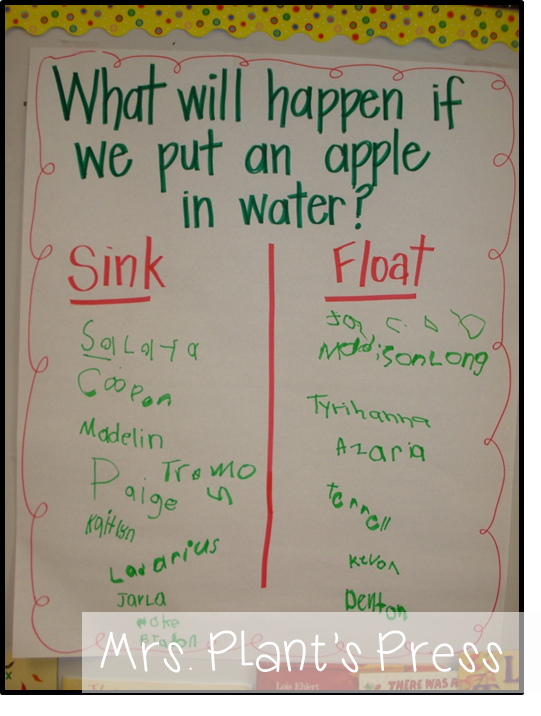 What will happen if
we put an apple
in water?
Sink
Madelin
Paige
Kaitlyn
Ladarius
Jarla
Float
MaddisonLong
Tyrihanna
Azaria
terrell
Kevon
Denton
Mrs. Plant's Press
Lois Ehlert
THERE WAS A